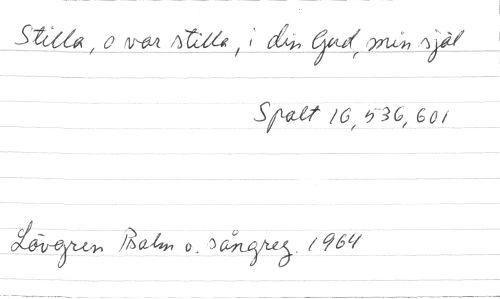 Stilla, o var stilla, i din Gud, min själ
Spalt 16, 536, 601
Lövgren Psalm o. sångreg. 1964